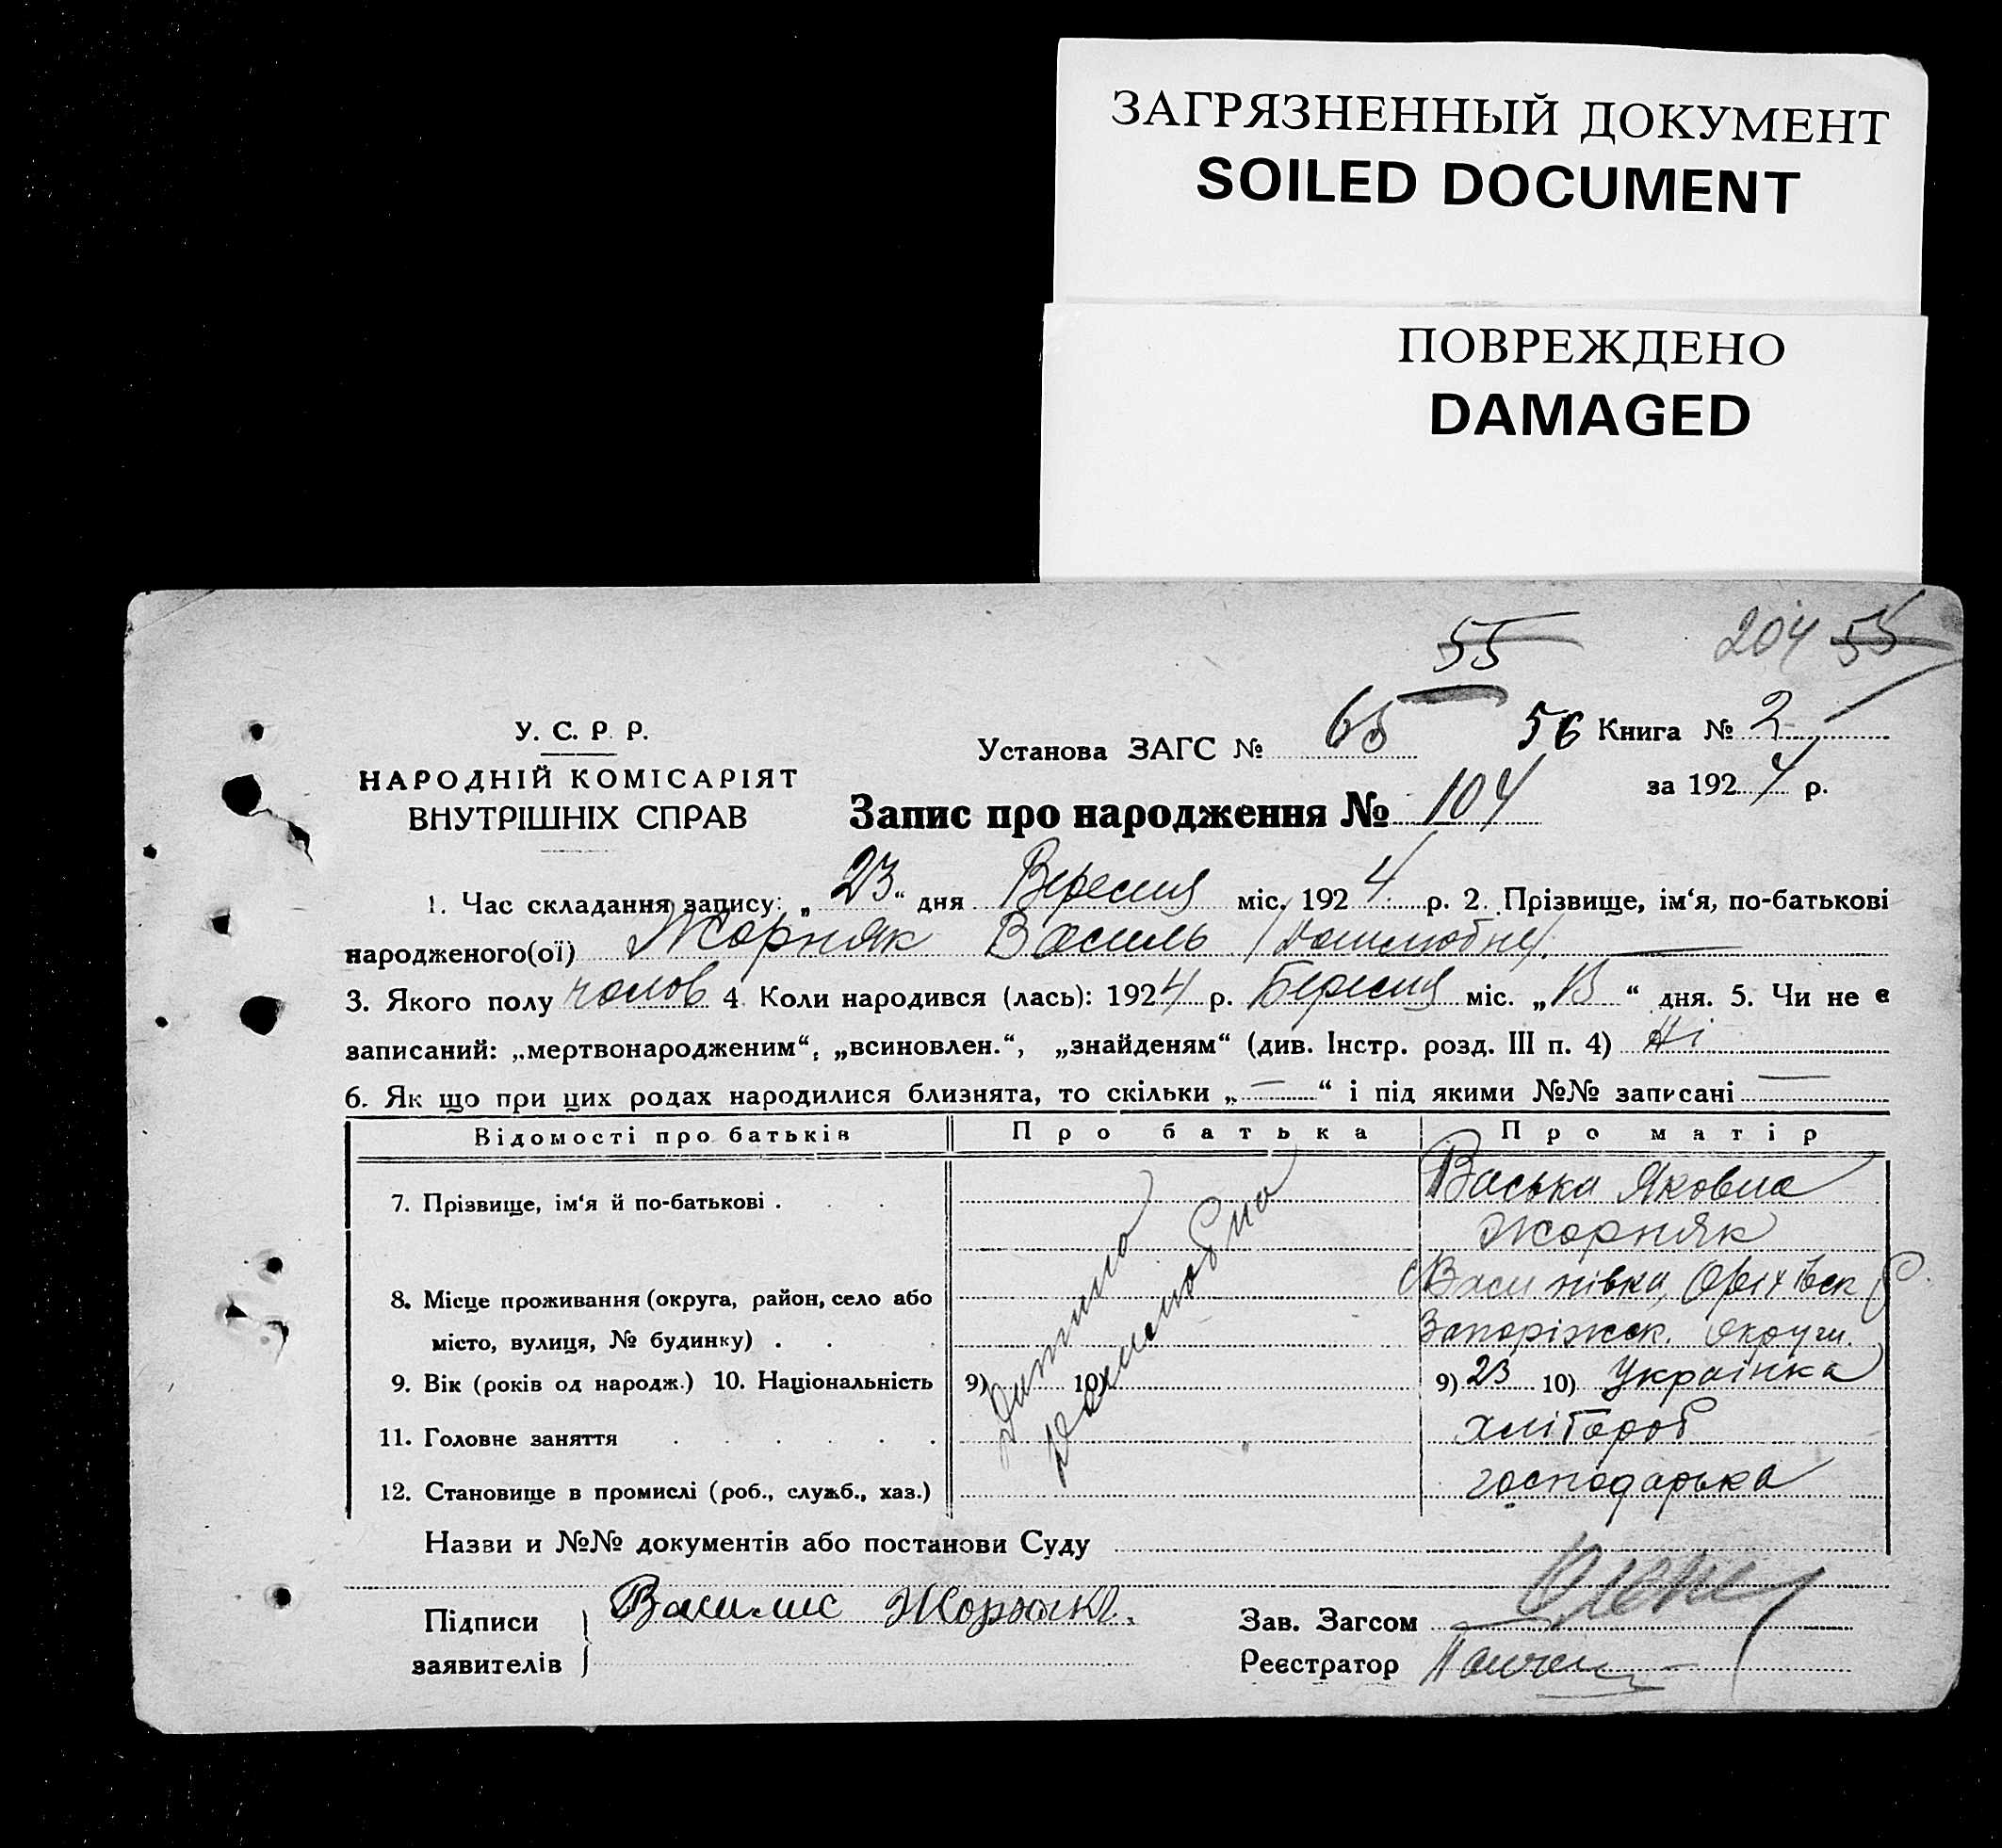 ЗАГРЯЗНЕННЫЙ ДОКУМЕНТ
SOILED DOCUMENT
ПОВРЕЖДЕНО
DAMAGED
55 204 55
У. С. Р. Р.
НАРОДНІЙ КОМІСАРІЯТ
ВНУТРІШНІХ СПРАВ
Установа ЗАГС № 65 56 Книга № 2
за 1924 р.
Запис про народження № 104
1. Час складання запису: „23“ дня Вересня міс. 1924 р. 2. Прізвище, ім‘я, по-батькові
народженого(ої) Жорняк Василь
3. Якого полу чолов 4. Коли народився (лась): 1924 р. Вересня міс. „13“ дня. 5. Чи не є
записаний: „мертвонародженим“, „всиновлен.“, „знайденям“ (див. Інстр. розд. III п. 4) Ні
6. Як що при цих родах народилися близнята, то скільки „—“ і під якими №№ записані —
Відомості про батьків Про батька Про матір
7. Прізвище, ім‘я й по-батькові . . . Васька Яковна
Жорняк
Дитина
8. Місце проживання (округа, район, село або
місто, вулиця, № будинку) . . . Запоріжск. Округи.
9. Вік (років од народж.) 10. Національність 9) 10) 9) 23 10) Українка
11. Головне заняття . . . . . . хлібороб
12. Становище в промислі (роб., служб., хаз.) господарька
Назви и №№ документів або постанови Суду
Підписи
заявителів
Зав. Загсом
Реєстратор